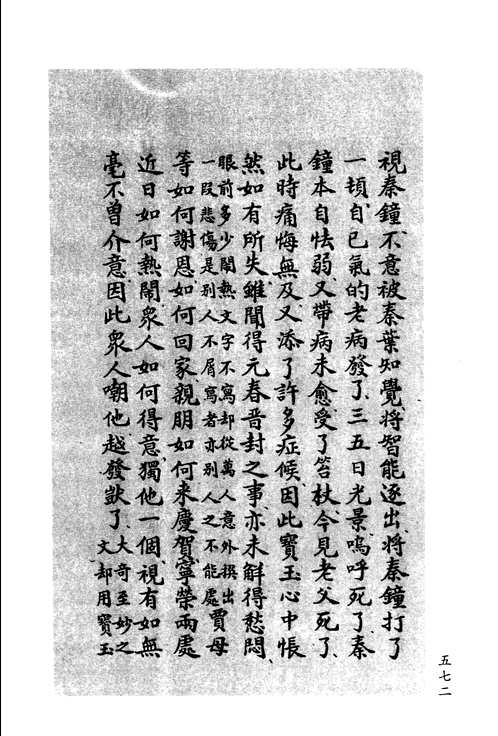 視秦鐘不意被秦葉知覺將智能逐出將秦鐘打了
一頓自己氣的老病發了三五日光景嗚呼死了秦
鐘本自怯弱又帶病未愈受了笞杖今見老父死了
此時痛悔無及又添了許多症候因此寳玉心中悵
然如有所失雖聞得元春晋封之事亦未解得愁悶
眼前多少閙熱文字不寫却從萬人意外撰出
一段悲傷是别人不屑寫者亦别人之不能處
賈母
等如何謝恩如何回家親朋如何来慶賀寧榮兩處
近日如何熱鬧衆人如何得意獨他一個視有如無
毫不曽介意因此衆人嘲他越發獃了
大奇至妙之
文却用寳玉
五七二